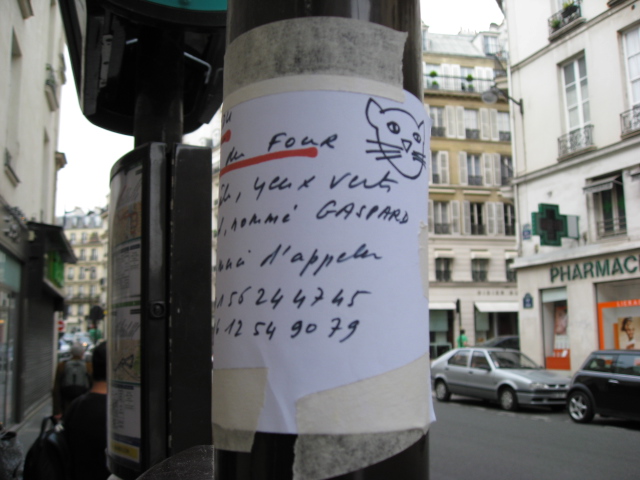 du FOUR
yeux verts
nommé GASPARD
d'appeler
1 56 24 47 45
12 54 90 79
PHARMAC